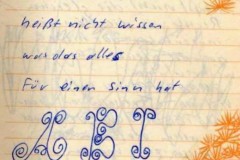 heißt nicht wissen
was das alles
für einen Sinn hat
ABI